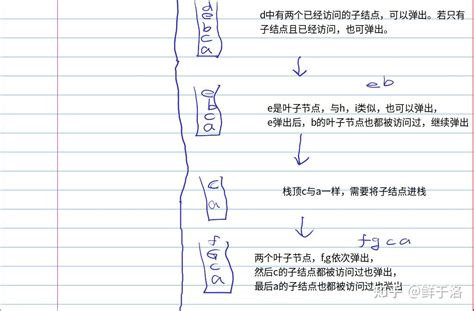 d
e
b
c
a
d中有两个已经访问的子结点，可以弹出。若只有
子结点且已经访问，也可弹出。
eb
e
b
c
a
e是叶子节点，与h，i类似，也可以弹出，
e弹出后，b的叶子节点也都被访问过，继续弹出
c
a
栈顶c与a一样，需要将子结点进栈
fgca
f
g
c
a
两个叶子节点，f,g依次弹出，
然后c的子结点都被访问过也弹出，
最后a的子结点也都被访问过也弹出
知乎 @鲜于洛